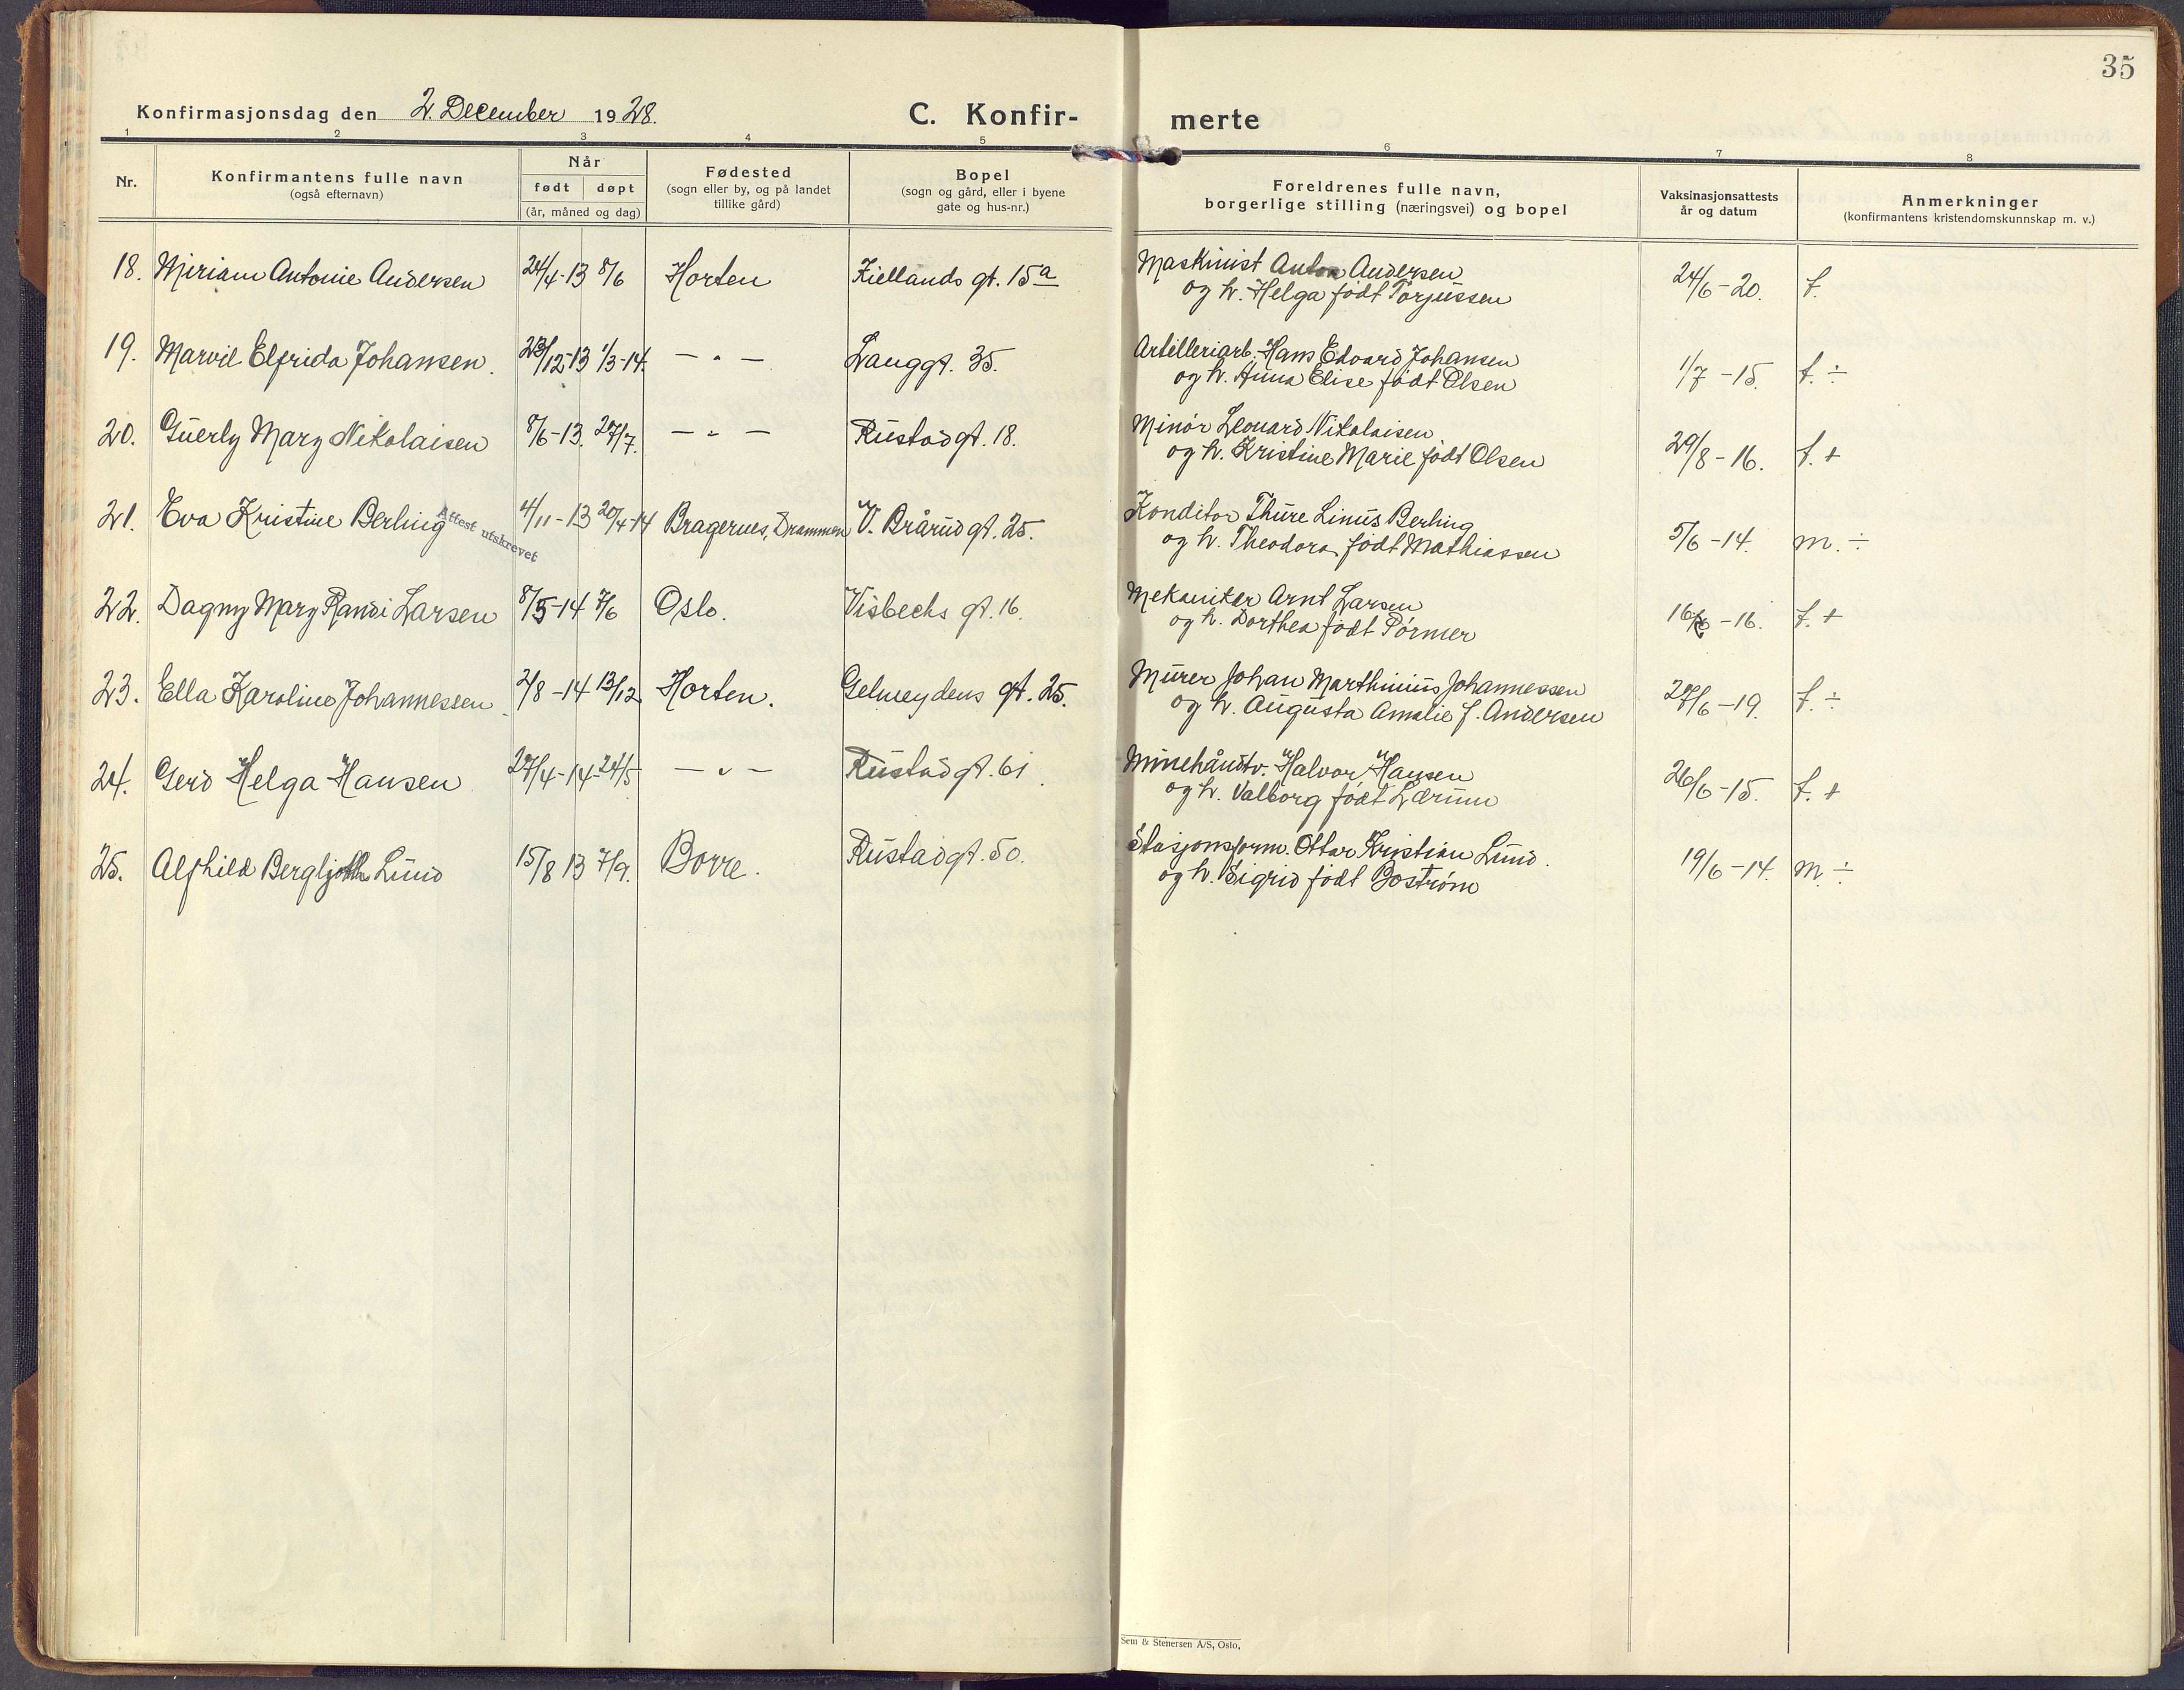 35
Konfirmasjonsdag den 2. December 1928.
C. Konfir- merte
1 2 3 4 5 6 7 8
Nr.
Konfirmantens fulle navn
(også efternavn)
Når
født døpt
(år, måned og dag)
Fødested
(sogn eller by, og på landet
tillike gård)
Bopel
(sogn og gård, eller i byene
gate og hus-nr.)
Foreldrenes fulle navn,
borgerlige stilling (næringsvei) og bopel
Vaksinasjonsattests
år og datum
Anmerkninger
(konfirmantens kristendomskunnskap m. v.)
18. Miriam Antonie Andersen 24/4-13 8/6 Horten Kiellands gt. 15a Maskinist Anton Andersen 24/6-20. f.
og h. Helga født Torjussen
19. Marvil Elfrida Johansen. 23/12-13 1/3-14. — " — Langgt. 35. Artilleriarb. Hans Edvard Johansen 1/7-15. f. ÷
og h. Anna Elise født Olsen
20. Guerly Mary Nikolaisen 8/6-13. 27/7. — " — Rustadgt. 18. Minør Leonard Nikolaisen 29/8-16. f. +
og h. Kristine Marie født Olsen
21. Eva Kristine Berling Attest utskrevet 4/11-13 20/4-14 Bragernes, Drammen V. Brårudgt. 25. Konditor Thure Linus Berling 5/6-14. m. ÷
og h. Theodora født Mathiassen
22. Dagny Mary Randi Larsen 8/5-14 7/6 Oslo. Visbechs gt. 16. Mekaniker Arnt Larsen 16/6-16. f. +
og h. Dorthea født Pormer
23. Ella Karoline Johannessen 2/8-14 13/12 Horten. Gelmeydens gt. 25. Murer Johan Marthinius Johannessen 27/6-19. f. ÷
og h. Augusta Amalie f. Andersen
24. Gerd Helga Hansen 27/4-14 24/5 — " — Rustadgt. 61 Minehåndv. Halvor Hansen 26/6-15. f. +
og h. Valborg født Lærum
25. Alfhild Bergljoth Lund 15/8 13 7/9. Borre. Rustadgt. 50. Stasjonsform. Ottar Kristian Lund. 19/6-14. m. ÷
og h. Sigrid født Bostrøm
Sem & Stenersen A/S, Oslo.